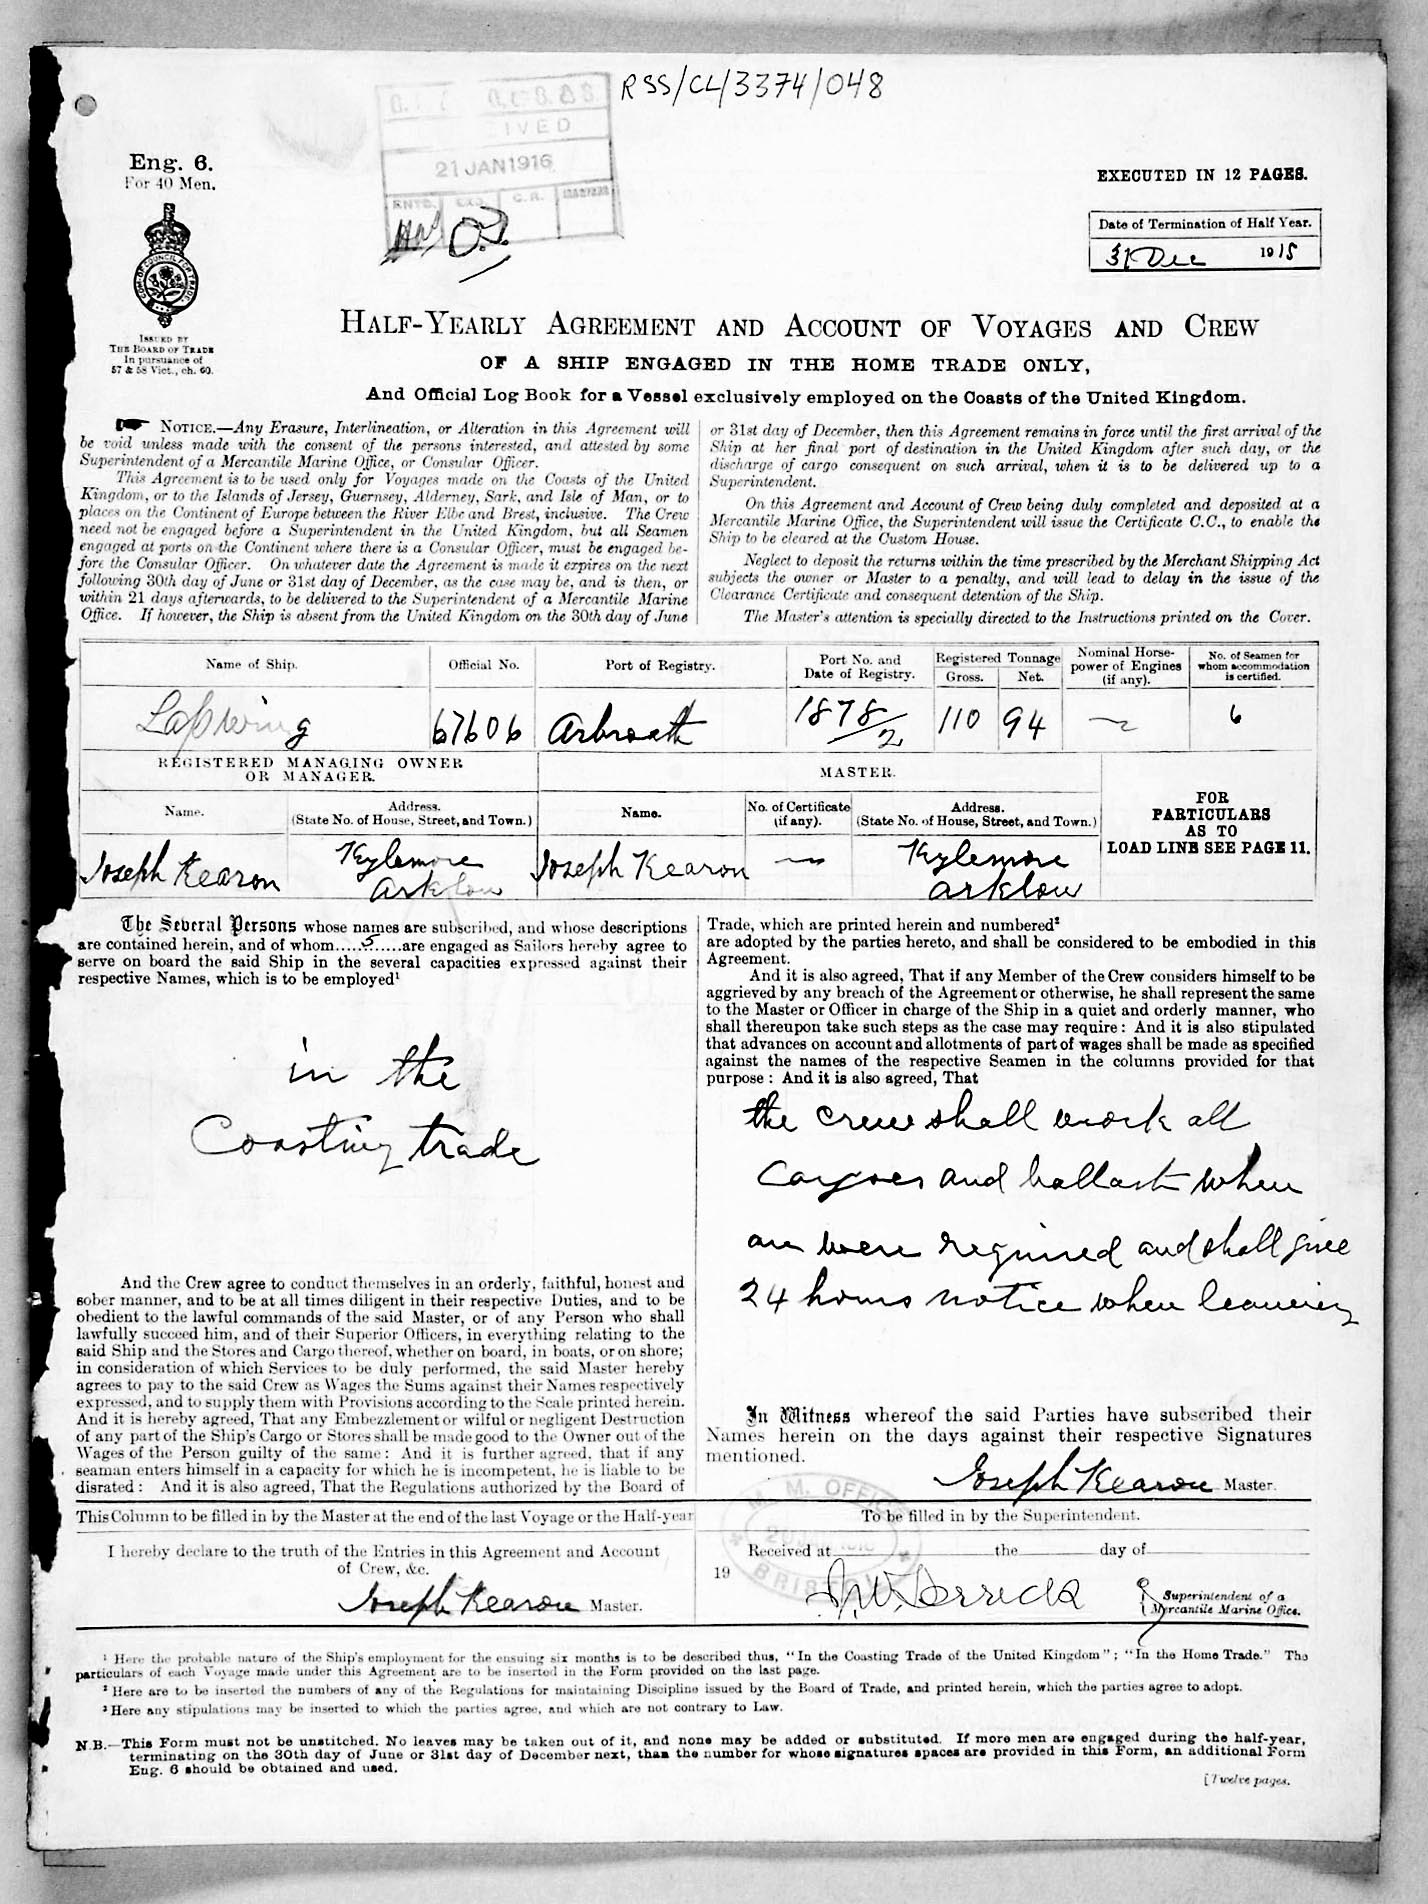 RSS/CL/3374/048
21 JAN 1916
Eng. 6.
For 40 Men.
ISSUED BY
THE BOARD OF TRADE
In pursuance of
57 & 58 Vict., ch. 60.
EXECUTED IN 12 PAGES.
Date of Termination of Half Year.
31 Dec 1915
HALF-YEARLY AGREEMENT AND ACCOUNT OF VOYAGES AND CREW
OF A SHIP ENGAGED IN THE HOME TRADE ONLY,
And Official Log Book for a Vessel exclusively employed on the Coasts of the United Kingdom.
NOTICE.—Any Erasure, Interlineation, or Alteration in this Agreement will
be void unless made with the consent of the persons interested, and attested by some
Superintendent of a Mercantile Marine Office, or Consular Officer.
This Agreement is to be used only for Voyages made on the Coasts of the United
Kingdom, or to the Islands of Jersey, Guernsey, Alderney, Sark, and Isle of Man, or to
places on the Continent of Europe between the River Elbe and Brest, inclusive. The Crew
need not be engaged before a Superintendent in the United Kingdom, but all Seamen
engaged at ports on the Continent where there is a Consular Officer, must be engaged be-
fore the Consular Officer. On whatever date the Agreement is made it expires on the next
following 30th day of June or 31st day of December, as the case may be, and is then, or
within 21 days afterwards, to be delivered to the Superintendent of a Mercantile Marine
Office. If however, the Ship is absent from the United Kingdom on the 30th day of June
or 31st day of December, then this Agreement remains in force until the first arrival of the
Ship at her final port of destination in the United Kingdom after such day, or the
discharge of cargo consequent on such arrival, when it is to be delivered up to a
Superintendent.
On this Agreement and Account of Crew being duly completed and deposited at a
Mercantile Marine Office, the Superintendent will issue the Certificate C.C., to enable the
Ship to be cleared at the Custom House.
Neglect to deposit the returns within the time prescribed by the Merchant Shipping Act
subjects the owner or Master to a penalty, and will lead to delay in the issue of the
Clearance Certificate and consequent detention of the Ship.
The Master's attention is specially directed to the Instructions printed on the Cover.
Name of Ship. Official No. Port of Registry. Port No. and Date of Registry. Registered Tonnage Gross. Net. Nominal Horse-power of Engines (if any). No. of Seamen for whom accommodation is certified.
Lapwing 67606 Arbroath 1878/2 110 94 6
REGISTERED MANAGING OWNER OR MANAGER. MASTER.
FOR
PARTICULARS
AS TO
LOAD LINE SEE PAGE 11.
Name. Address. (State No. of House, Street, and Town.) Name. No. of Certificate (if any). Address. (State No. of House, Street, and Town.)
Joseph Kearon Kylemore Arklow Joseph Kearon Kylemore Arklow
The Several Persons whose names are subscribed, and whose descriptions
are contained herein, and of whom.....5......are engaged as Sailors hereby agree to
serve on board the said Ship in the several capacities expressed against their
respective Names, which is to be employed¹
in the
Coasting trade
And the Crew agree to conduct themselves in an orderly, faithful, honest and
sober manner, and to be at all times diligent in their respective Duties, and to be
obedient to the lawful commands of the said Master, or of any Person who shall
lawfully succeed him, and of their Superior Officers, in everything relating to the
said Ship and the Stores and Cargo thereof, whether on board, in boats, or on shore;
in consideration of which Services to be duly performed, the said Master hereby
agrees to pay to the said Crew as Wages the Sums against their Names respectively
expressed, and to supply them with Provisions according to the Scale printed herein.
And it is hereby agreed, That any Embezzlement or wilful or negligent Destruction
of any part of the Ship's Cargo or Stores shall be made good to the Owner out of the
Wages of the Person guilty of the same: And it is further agreed, that if any
seaman enters himself in a capacity for which he is incompetent, he is liable to be
disrated: And it is also agreed, That the Regulations authorized by the Board of
Trade, which are printed herein and numbered²
are adopted by the parties hereto, and shall be considered to be embodied in this
Agreement.
And it is also agreed, That if any Member of the Crew considers himself to be
aggrieved by any breach of the Agreement or otherwise, he shall represent the same
to the Master or Officer in charge of the Ship in a quiet and orderly manner, who
shall thereupon take such steps as the case may require: And it is also stipulated
that advances on account and allotments of part of wages shall be made as specified
against the names of the respective Seamen in the columns provided for that
purpose: And it is also agreed, That
the crew shall work all
Cargoes and ballast when
an were required and shall give
24 hours notice when leaving
In Witness whereof the said Parties have subscribed their
Names herein on the days against their respective Signatures
mentioned.
Joseph Kearon Master.
This Column to be filled in by the Master at the end of the last Voyage or the Half-year
I hereby declare to the truth of the Entries in this Agreement and Account
of Crew, &c.
Joseph Kearon Master.
To be filled in by the Superintendent.
M. M. OFFICE
BRISTOL
Received at the day of
19
Superintendent of a
Mercantile Marine Office.
¹ Here the probable nature of the Ship's employment for the ensuing six months is to be described thus, "In the Coasting Trade of the United Kingdom"; "In the Home Trade." The
particulars of each Voyage made under this Agreement are to be inserted in the Form provided on the last page.
² Here are to be inserted the numbers of any of the Regulations for maintaining Discipline issued by the Board of Trade, and printed herein, which the parties agree to adopt.
³ Here any stipulations may be inserted to which the parties agree, and which are not contrary to Law.
N.B.—This Form must not be unstitched. No leaves may be taken out of it, and none may be added or substituted. If more men are engaged during the half-year,
terminating on the 30th day of June or 31st day of December next, than the number for whose signatures spaces are provided in this Form, an additional Form
Eng. 6 should be obtained and used.
[Twelve pages.